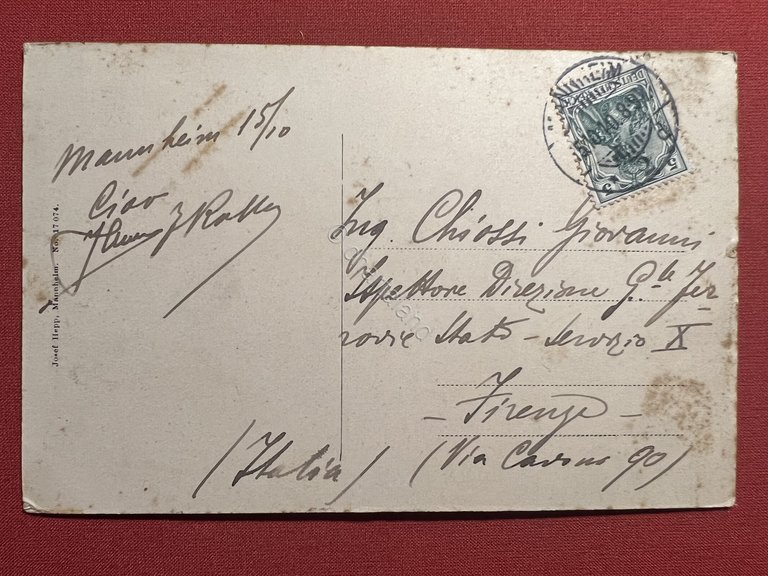 Mannheim 15/10
Ciao
Josef Hepp, Mannheim. No. 17 074.
Ing Chiossi Giovanni
Ispettore Direzione G.le Fer
rovie Stato - Servizio X
- Firenze -
(Via Cavour 90)
(Italia)
5
5